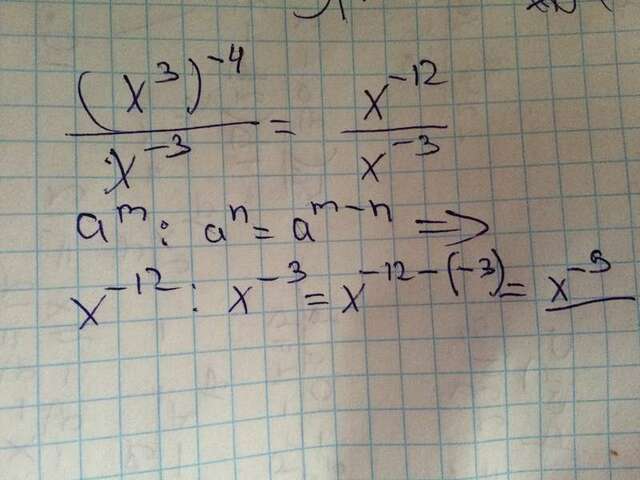 (x³)⁻⁴ / x⁻³ = x⁻¹² / x⁻³
aᵐ : aⁿ = aᵐ⁻ⁿ ⇒
x⁻¹² : x⁻³ = x⁻¹²⁻⁽⁻³⁾ = x⁻⁹